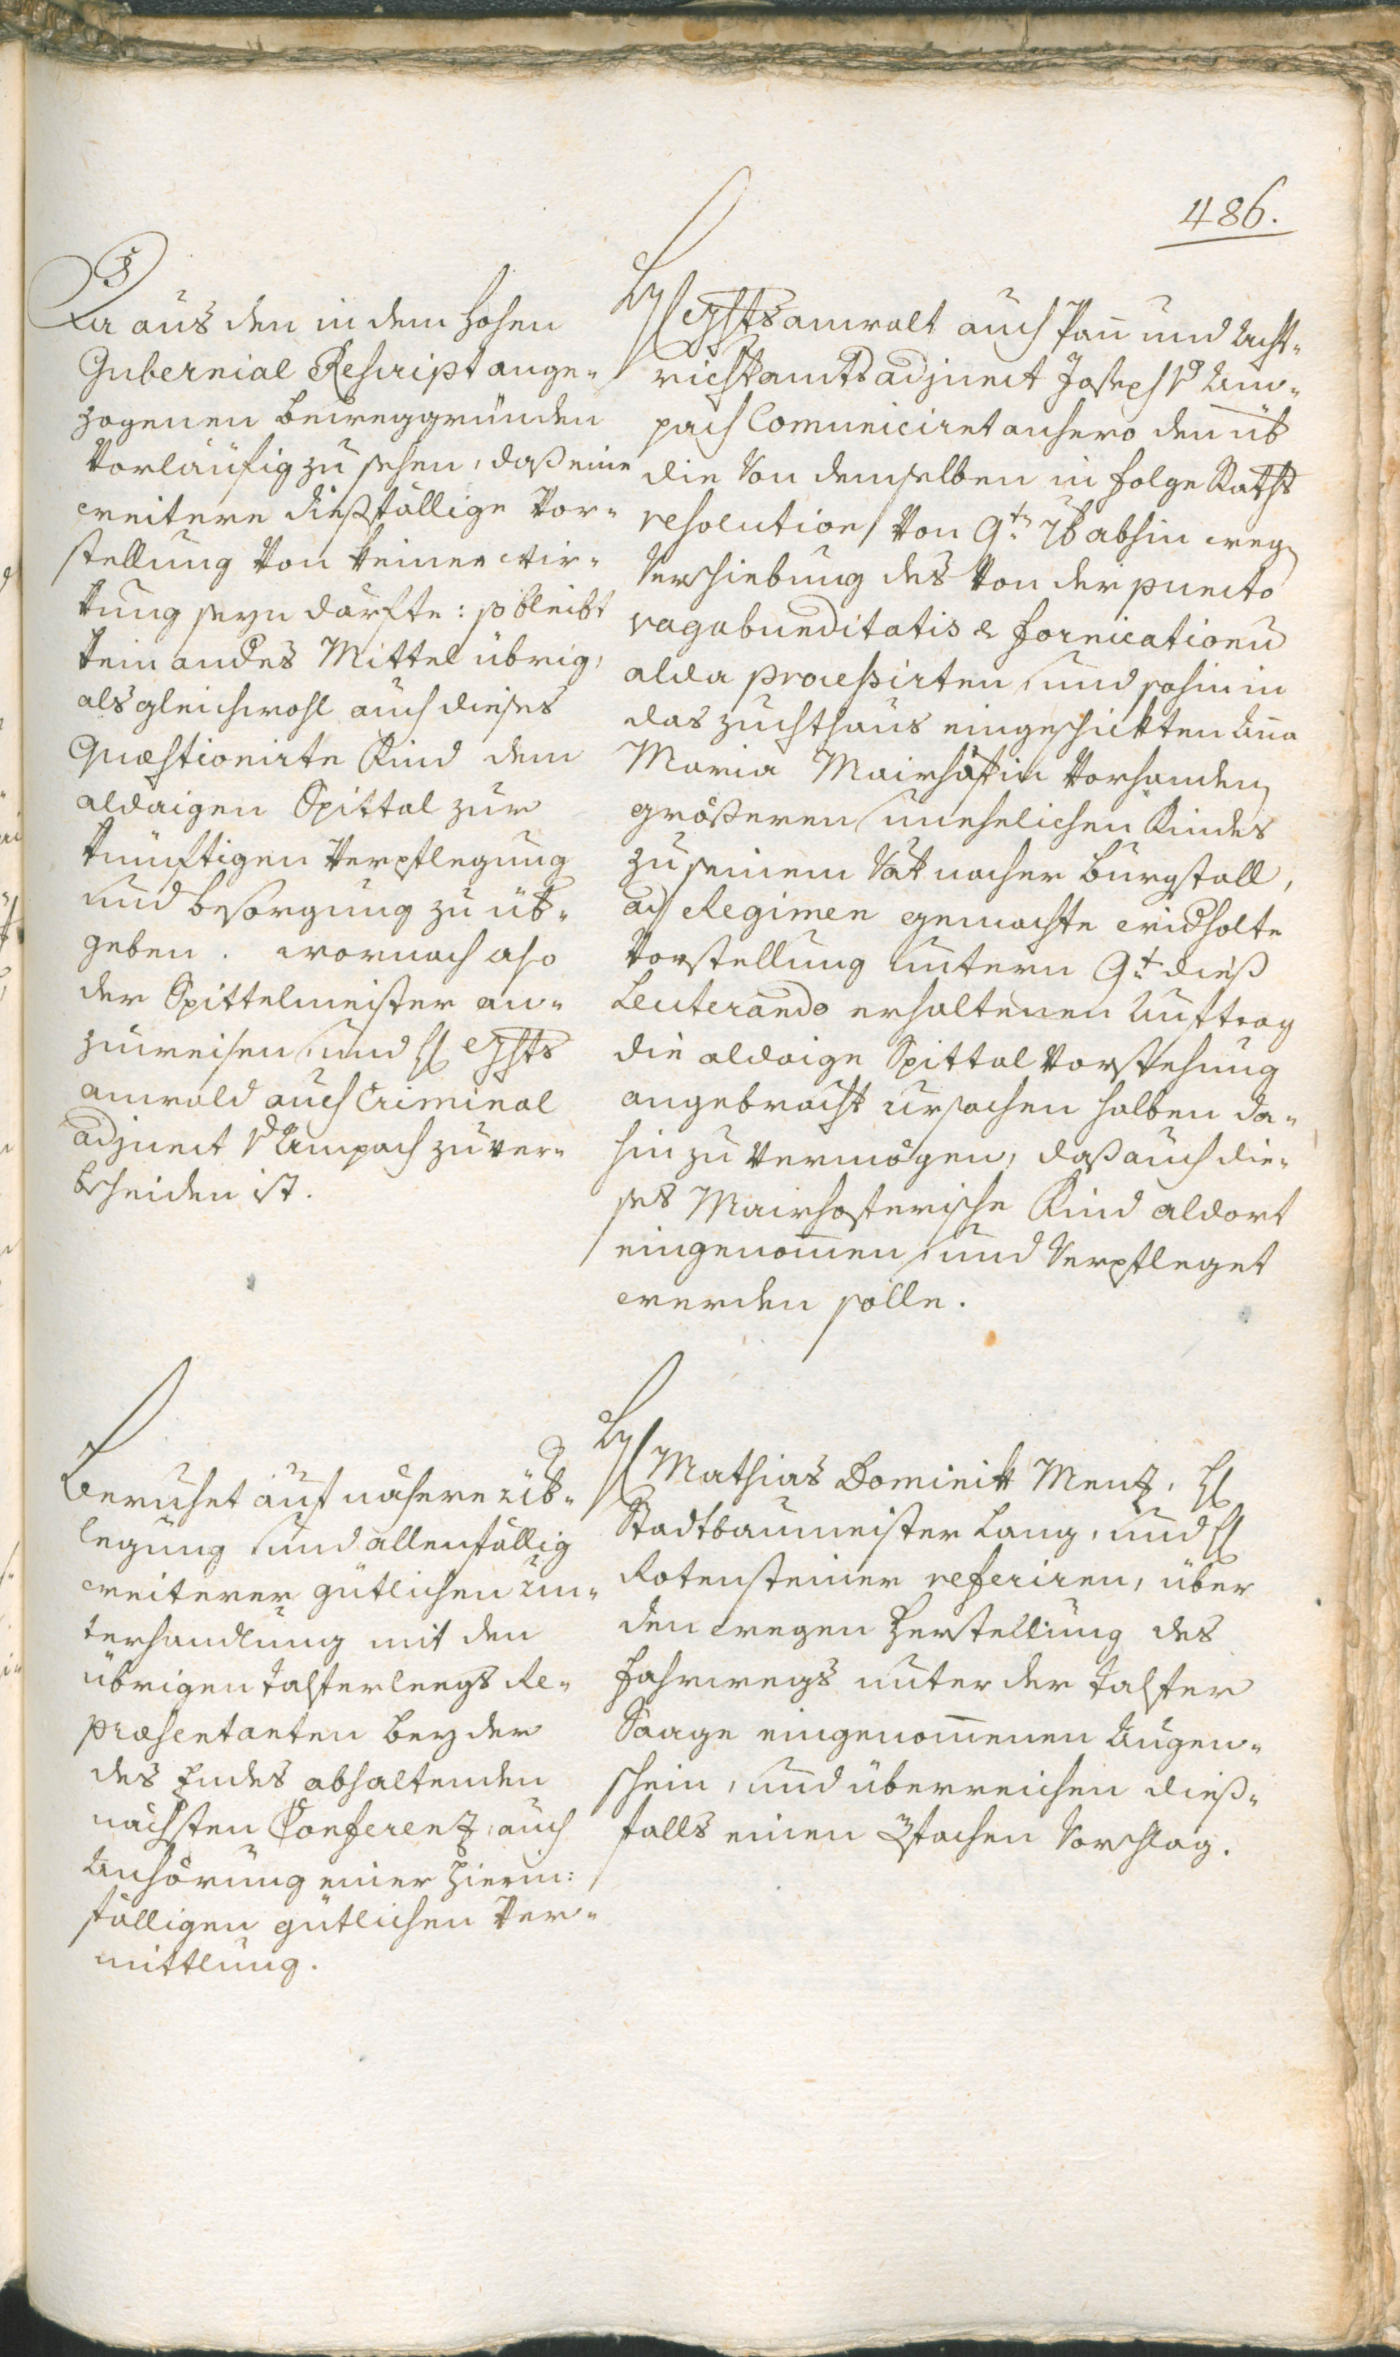 486.
Da aus den in dem hohen
Gubernial Rescript ange-
zogenen beweggründen
vorläufig zu sehen, daß eine
weitere dießfällige Vor-
stellung von keiner wir-
kung seyn darfte: so bleibt
kein andes Mittel übrig,
als gleichwohl auch dieses
Quæstionirte Kind dem
aldaigen Spittal zur
künftigen Verpflegung
und besorgung zu üb-
geben. wornach also
der Spittelmeister an-
zuweisen, und H
anwald auch Criminal
adjunct v Ampach zu ver-
bscheiden ist.
H anwalt auch Pann und Acht-
richtamts adjunct Joseph v Am-
pach Comuniciret anhero den üb
die von demselben in folge Raths
resolution von 9t 7b abhin weg
Verschiebung des von der puncto
vagabunditatis & fornicationis
alda processirten, und sohin in
das zuchthaus eingeschickten Aña
Maria Mairhofin vorhanden
größeren unehelichen Kindes
zu seinem Vat nacher Burgstall,
ad Regimen gemachte widholte
Vorstellung untern 9t dieß
Leuterando erhaltenen Auftrag
die aldaige Spittal Vorstehung
angebracht ursachen halben da-
hin zu vermögen, daß auch die-
ses Mairhoferische Kind aldort
eingenom̄en, und Verpfleget
werden solle.
Beruhet auf nähere üb-
legung, und allenfällig
weiterer gütlichen un-
terhandlung mit den
übrigen talfer leegs Re-
præsentanten bey der
des Endes abhaltenden
nächsten Conferenz, auch
Anhörung einer hierin:
fälligen gütlichen Ver-
mittlung.
H Mathias Dominikk Menz, H
Stadtbaumeister Lang, und H
Rotensteiner referiren, über
den wegen Herstellung des
fahrwegs unter der talfer
Saage eingenom̄enen Augen-
schein, und überreichen dieß-
falls einen 3fachen Vorschlag.